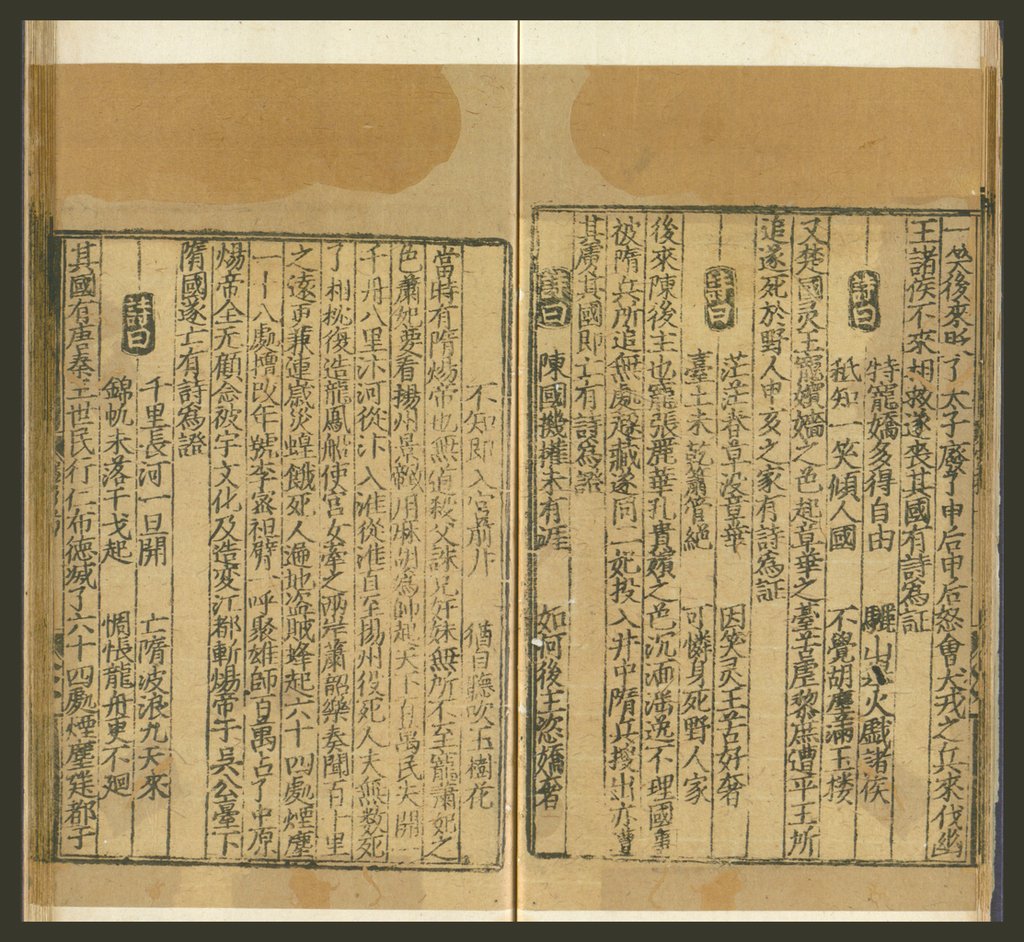 一笑後來時了太子廢了申后申后怒會犬戎之兵來伐幽
王諸侯不來相救遂喪其國有詩為証
詩曰
特寵嬌多得自由 驪山火戲諸侯
秪知一笑傾人國 不覺胡塵滿玉搂
又楚國灵王寵嬪嬙之色起章華之臺苦虐黎庶遭平王所
追遂死於野人申亥之家有詩為証
詩曰
茫茫春草沒章華 因笑灵王苦好奢
臺土未乾簫管絕 可憐身死野人家
後來陳後主也寵張麗華孔貴嬪之色沉湎滛逸不理國事
被隋兵所追無處躱藏遂同二妃投入井中隋兵搜出亦遭
其虜其國即亡有詩為證
詩曰
陳國機權未有涯 如何後主恣嬌奢
不知即入宮前井 猶自聽吹玉樹花
當時有隋煬帝也無道殺父誅兄奸妹無所不至寵蕭妃之
色蕭妃要看揚州景帝用麻胡為帥起天下百萬民夫開一
千丹八里汴河從汴入淮從淮直至揚州役死人夫無数死
了相枕復造龍鳳船使宮女牽之兩岸簫韶樂奏聞百十里
之遠更兼連歲災蝗餓死人遍地盗賊蜂起六十四處煙塵
一十八處擅改年號李密袒臂一呼聚雄師百萬占了中原
煬帝全无顧念被宇文化及造変江都斬煬帝于吳公臺下
隋國遂亡有詩為證
詩曰
千里長河一旦開 亡隋波浪九天來
錦帆未落干戈起 惆悵龍舟更不廻
其國有唐秦王世民行仁布德滅了六十四處煙塵建都于